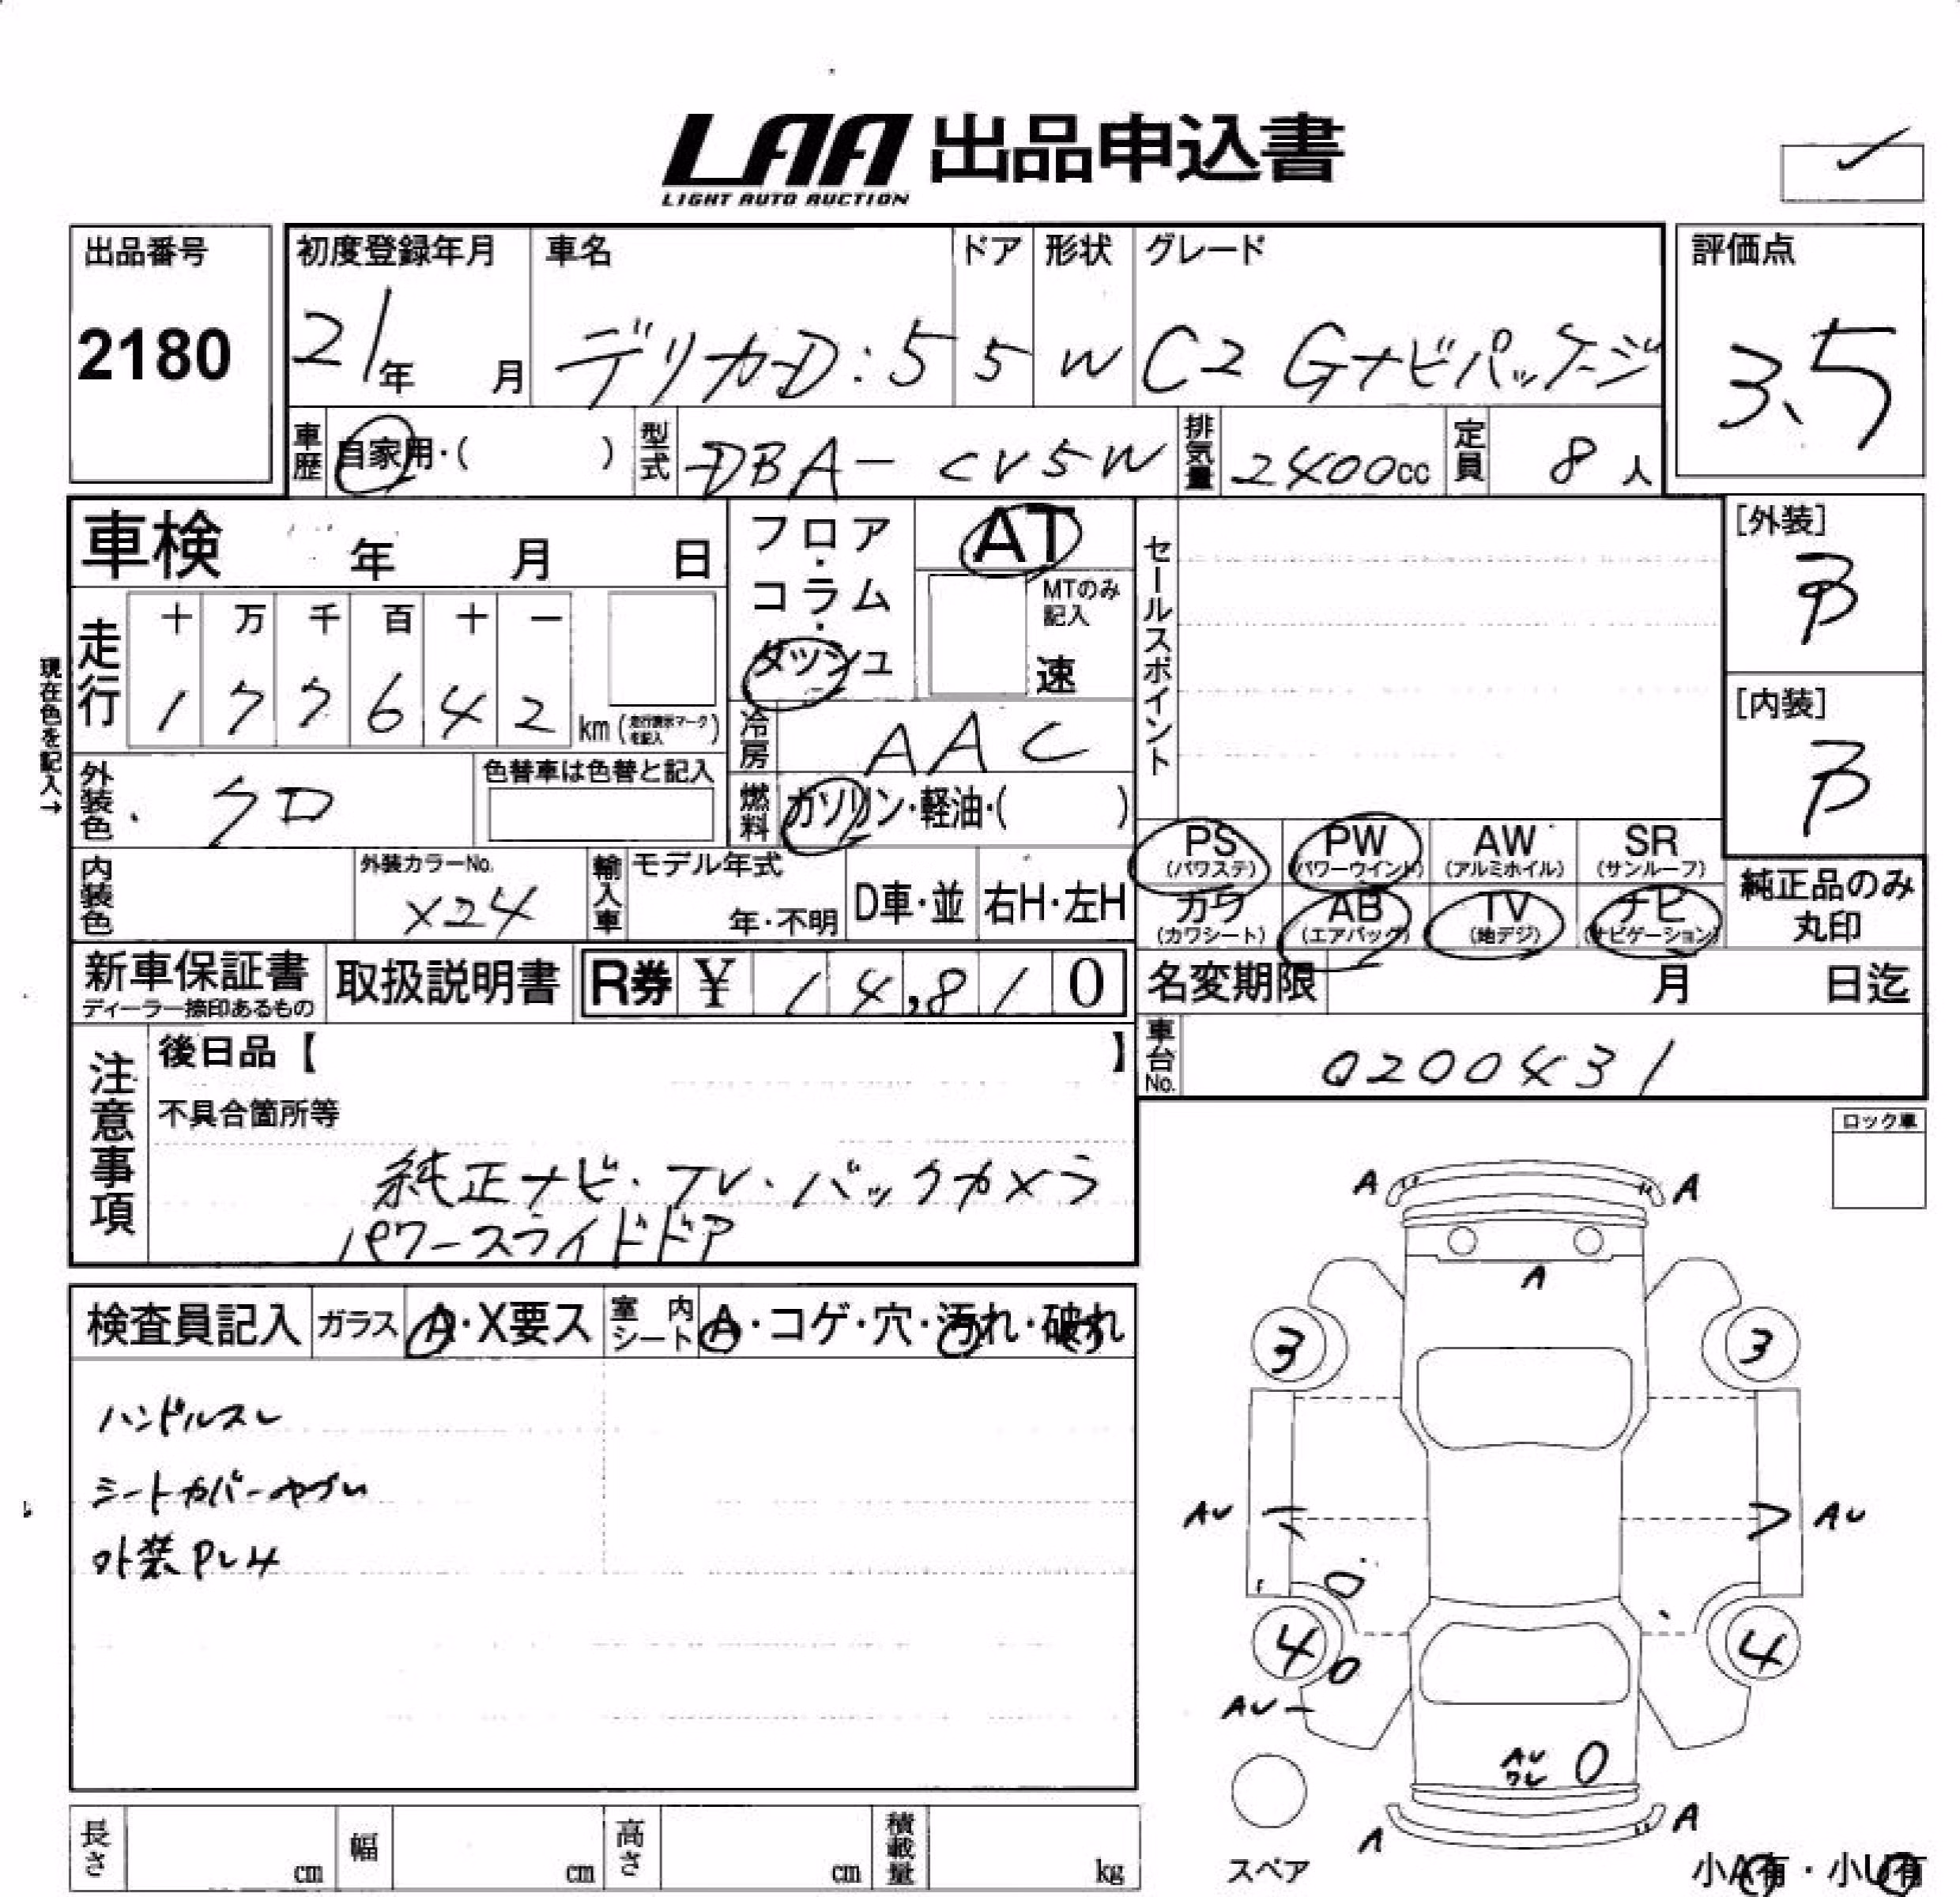 LAA 出品申込書
LIGHT AUTO AUCTION
出品番号
2180
初度登録年月
21年 月
車名
デリカD:5
ドア
5
形状
W
グレード
C2 Gナビパッケージ
評価点
3.5
車歴 自家用・( )
型式 DBA-CV5W
排気量 2400cc
定員 8人
車検 年 月 日
フロア・コラム・ダッシュ
AT
MTのみ記入
速
セールスポイント
[外装]
B
[内装]
B
現在色を記入→
走行
十 万 千 百 十 一
1 7 7 6 4 2 km (走行表示マークを記入)
冷房 AAC
燃料 ガソリン・軽油・( )
外装色 クロ
色替車は色替と記入
内装色
外装カラーNo.
X24
輸入車
モデル年式
年・不明
D車・並
右H・左H
PS (パワステ)
PW (パワーウインド)
AW (アルミホイル)
SR (サンルーフ)
カワ (カワシート)
AB (エアバッグ)
TV (地デジ)
ナビ (ナビゲーション)
純正品のみ
丸印
新車保証書
ディーラー捺印あるもの
取扱説明書
R券 ¥ 14,810
名変期限 月 日迄
車台No. 0200431
注意事項
後日品【 】
不具合箇所等
純正ナビ・TV・バックカメラ
パワースライドドア
ロック車
検査員記入
ガラス A・X要ス
室内シート A・コゲ・穴・汚れ・破れ
ハンドルスレ
シートカバーヤブレ
外装PレH
A A
A
3 3
AU AU
4 4
AU
AU
ワレ
A A
スペア
小A有・小U有
長さ cm
幅 cm
高さ cm
積載量 kg